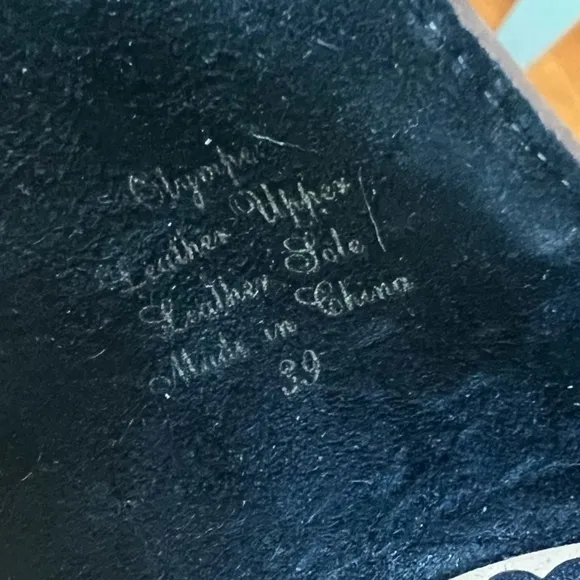 Leather Upper
Leather Sole
Made in China
39